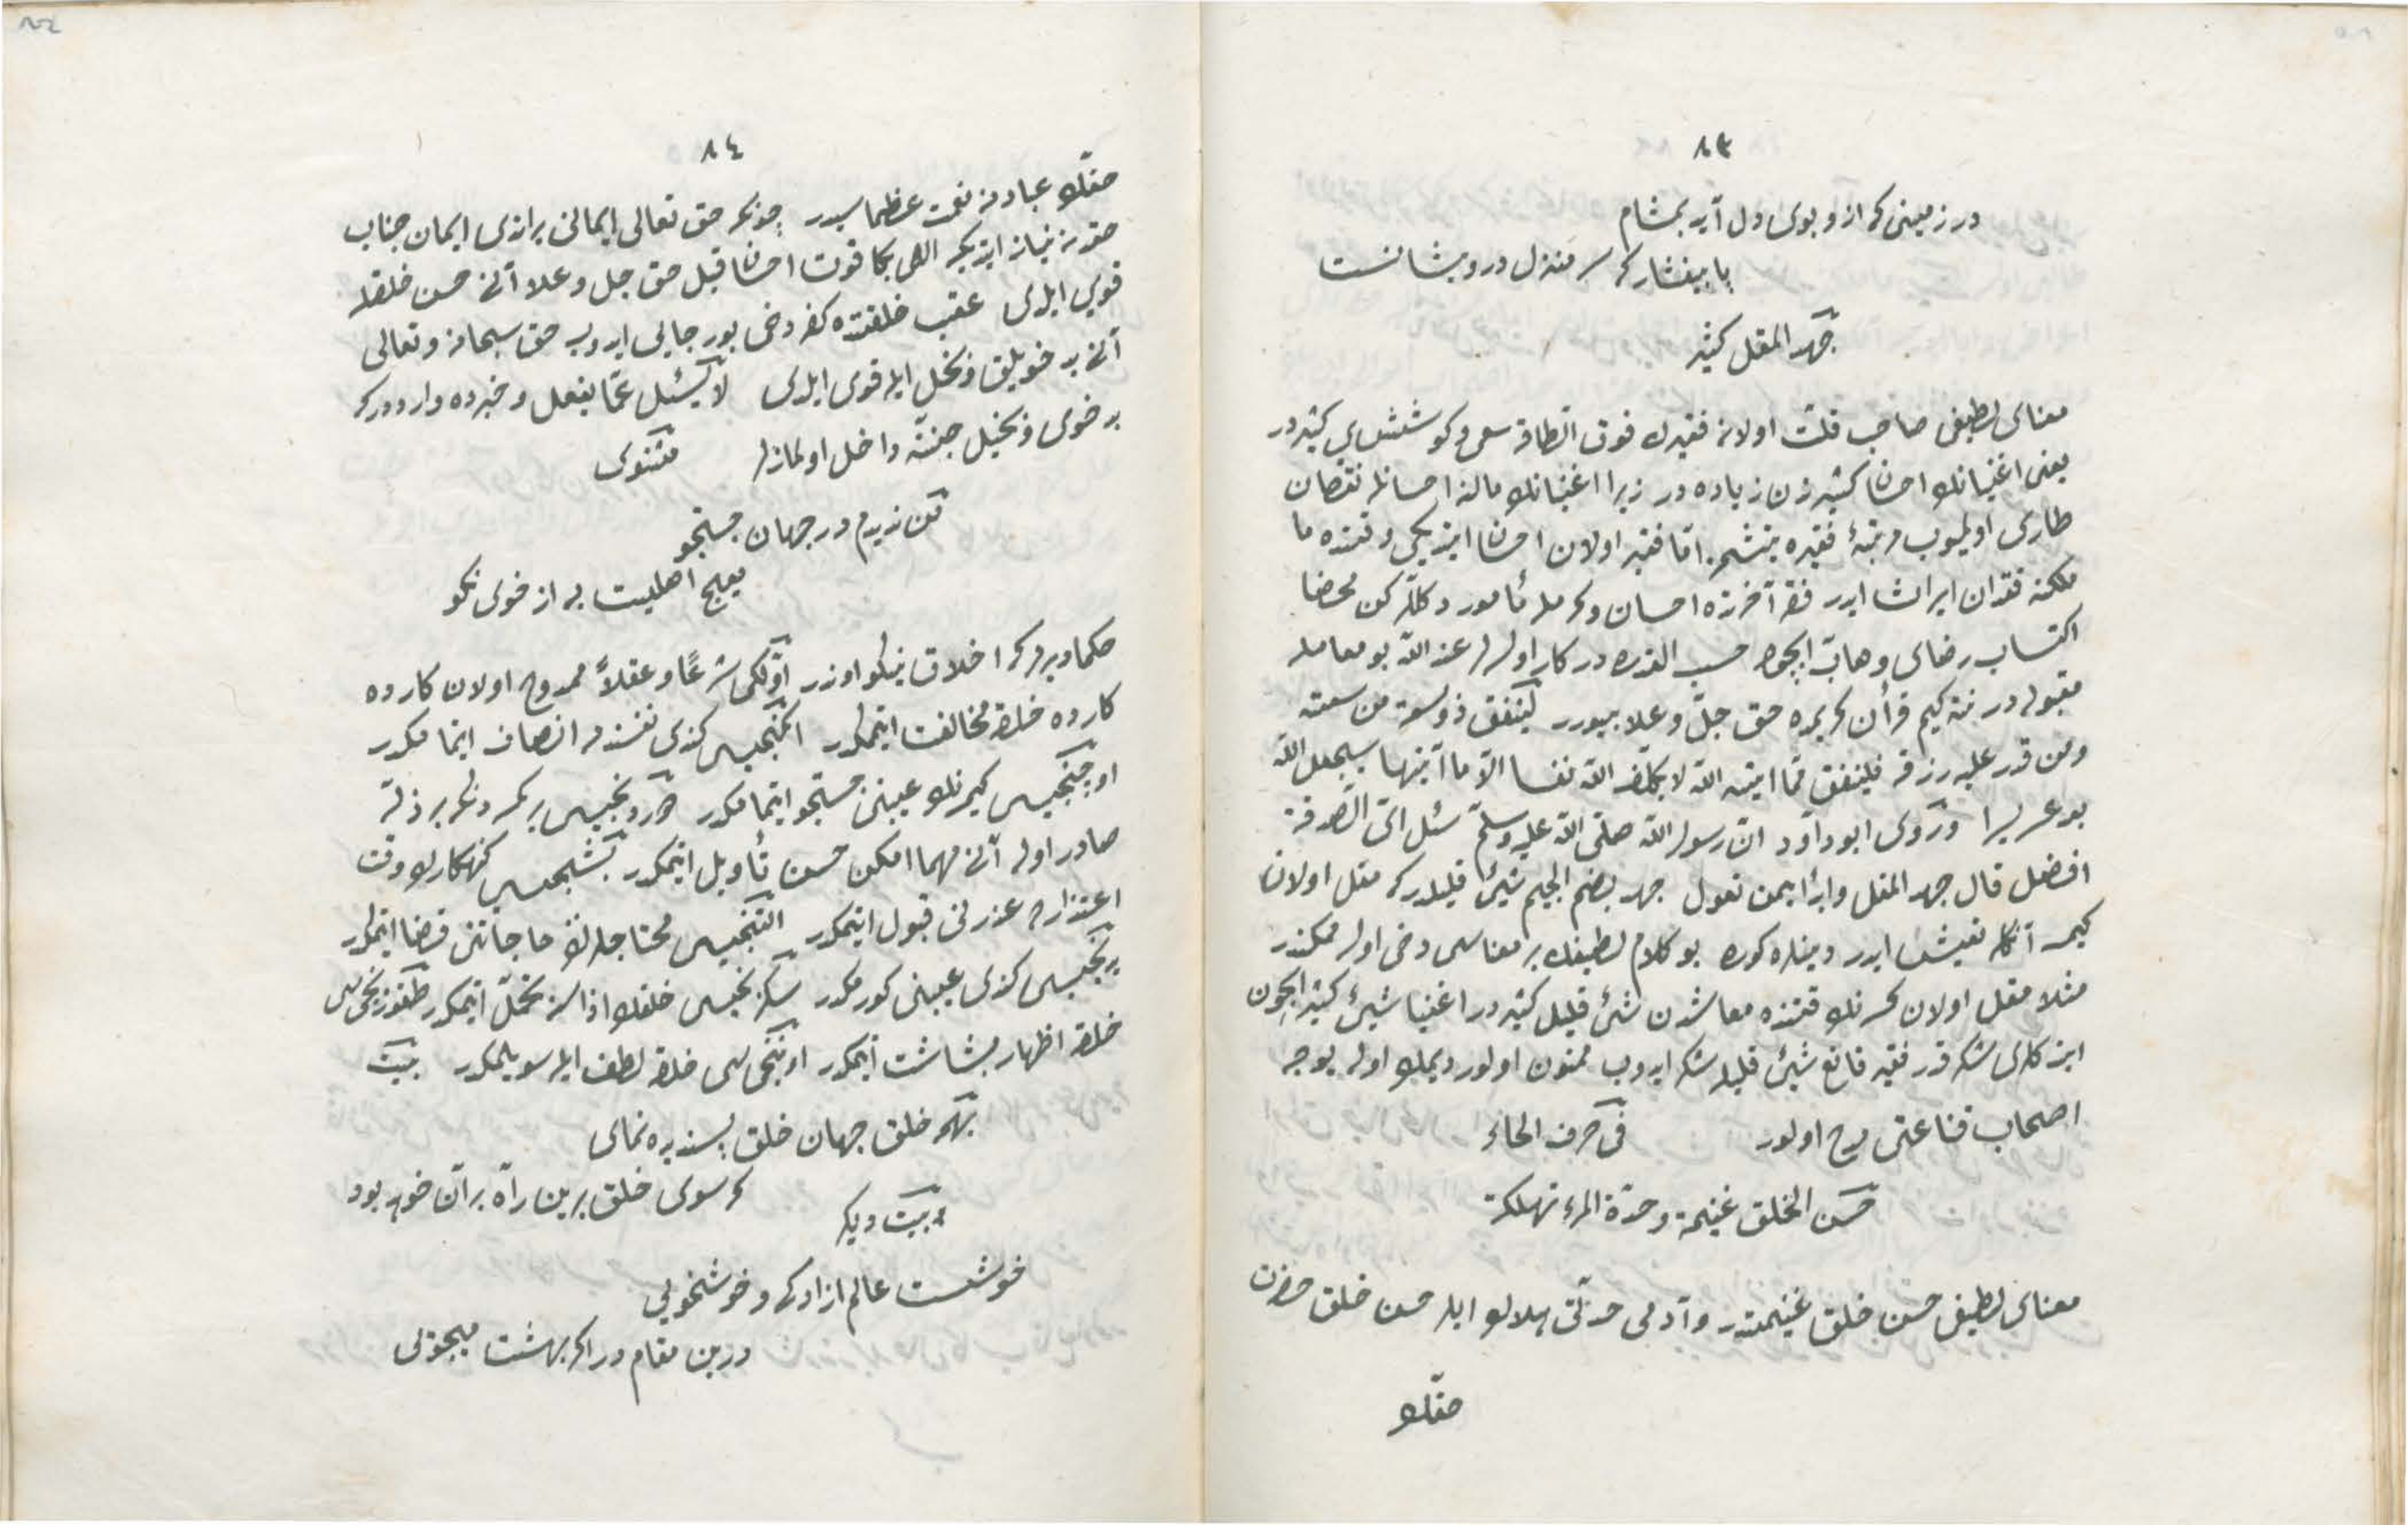 ٨٣
در زمینی که ازو بوی دل آید بمشام
پا بیفشار که سر منزل درویشانست
جهد المقل كثير
معنای لطیفی صاحب قلت اولان فقیرك فوق الطاقه سعی و كوششی كثیردر
یعنی اغنیانك احسان كثیرندن زیاده در زیرا اغنیانك مالنه احسانله نقصان
طاری اولمیوب مرتبهٔ فقیره یتشمز امّا فقیر اولان احسان ایتدیكی وقتده ما
ملكنه فقدان ایراث ایدر فقرا آخرزه احسان و كرمله مأمور دكللر كن محضا
اكتساب رضای وهاب ایچون حسب القدره در كار اولورلر عند اللّه بو معامله
مقبولدر نته كیم قرآن كریمده حق جلّ و علا بیورر لینفق ذو سعة من سعته
ومن قدر عليه رزقه فلينفق ممّا اتيه اللّه لا يكلّف اللّه نفسا الّا ما آتيها سيجعل اللّه
بعد عسر يسرا وروى ابو داود انّ رسول اللّه صلّى اللّه عليه وسلّم سئل اىّ الصدقة
افضل قال جهد المقل وابدأ بمن تعول جهد بضم الجيم شيئ قليلدركه مقل اولان
كیمسه آنكله تعیش ایدر دینلدی كوره بو كلام لطیفك بر معناسی دخی اولمق ممكندر
مثلا مقل اولان كسه نك قتنده معاشدن شئ قلیل كثیردر اغنیا شیئ كثیر ایچون
ایتدكلری شكر قدر فقیر قانع شیئ قلیله شكر ایدوب ممنون اولور دیمك اولور بو وجهله
اصحاب قناعتی مدح اولور في حرف الحاء
حسن الخلق غنيمة وحدّة المرء تهلكة
معنای لطیفی حسن خلق غنیمتدر و آدمی حدّتی هلاك ایدر حسن خلق حضرت
حقّك
٨٤
حقّك عبادنه نعمت عظماسیدر چونكه حق تعالی ایمانی یراتدی ایمان جناب
حقدن نیاز ایتدیكه الهی بكا قوت احسان قیل حق جل و علا آنی حسن خلقله
قوی ایلدی عقب خلقتنده كفر دخی بو رجایی ایدوب حق سبحانه و تعالی
آنی بد خویلق و بخل ایله قوی ایلدی لا يسئل عمّا يفعل و خبرده وارد دركه
بد خوی و بخیل جنّته داخل اولمازلر مثنوی
من ندیدم در جهان جستجو
هیچ اهلیت به از خوی نكو
حكما دیدیكه اخلاق نیكو اوندر اوّلكی شرعًا و عقلاً ممدوح اولان كارده
كارده خلقه مخالفت ایتمكدر ایكنجیسی كندی نفسندن انصاف ایتمكدر
اوچنجیسی كیمسه نك عیبنی جستجو ایتمامكدر دردنجیسی بر كمسه دن اكر بر ذلّة
صادر اولور آنی مهما امكن حسن تأویل ایتمكدر بشنجیسی كنهكارك وقت
اعتذارده عذرنی قبول ایتمكدر التنجیسی محتاجلرك حاجاتنی قضا ایتمكدر
یدنجیسی كندی عیبنی كورمكدر سكزنجیسی خلقك اذاسنه تحمّل ایتمكدر طقوزنجیسی
خلقه اظهار بشاشت ایتمكدر اوننجیسی خلقه لطف ایله سویلمكدر بیت
بهمه خلق جهان خلق پسندیده نمای
كه سوی خلد برین راه بران خوبد بود
بیت دیكر
خوشست عالم ازادكی و خوشخویی
درین مقام درا كر بهشت میجویی